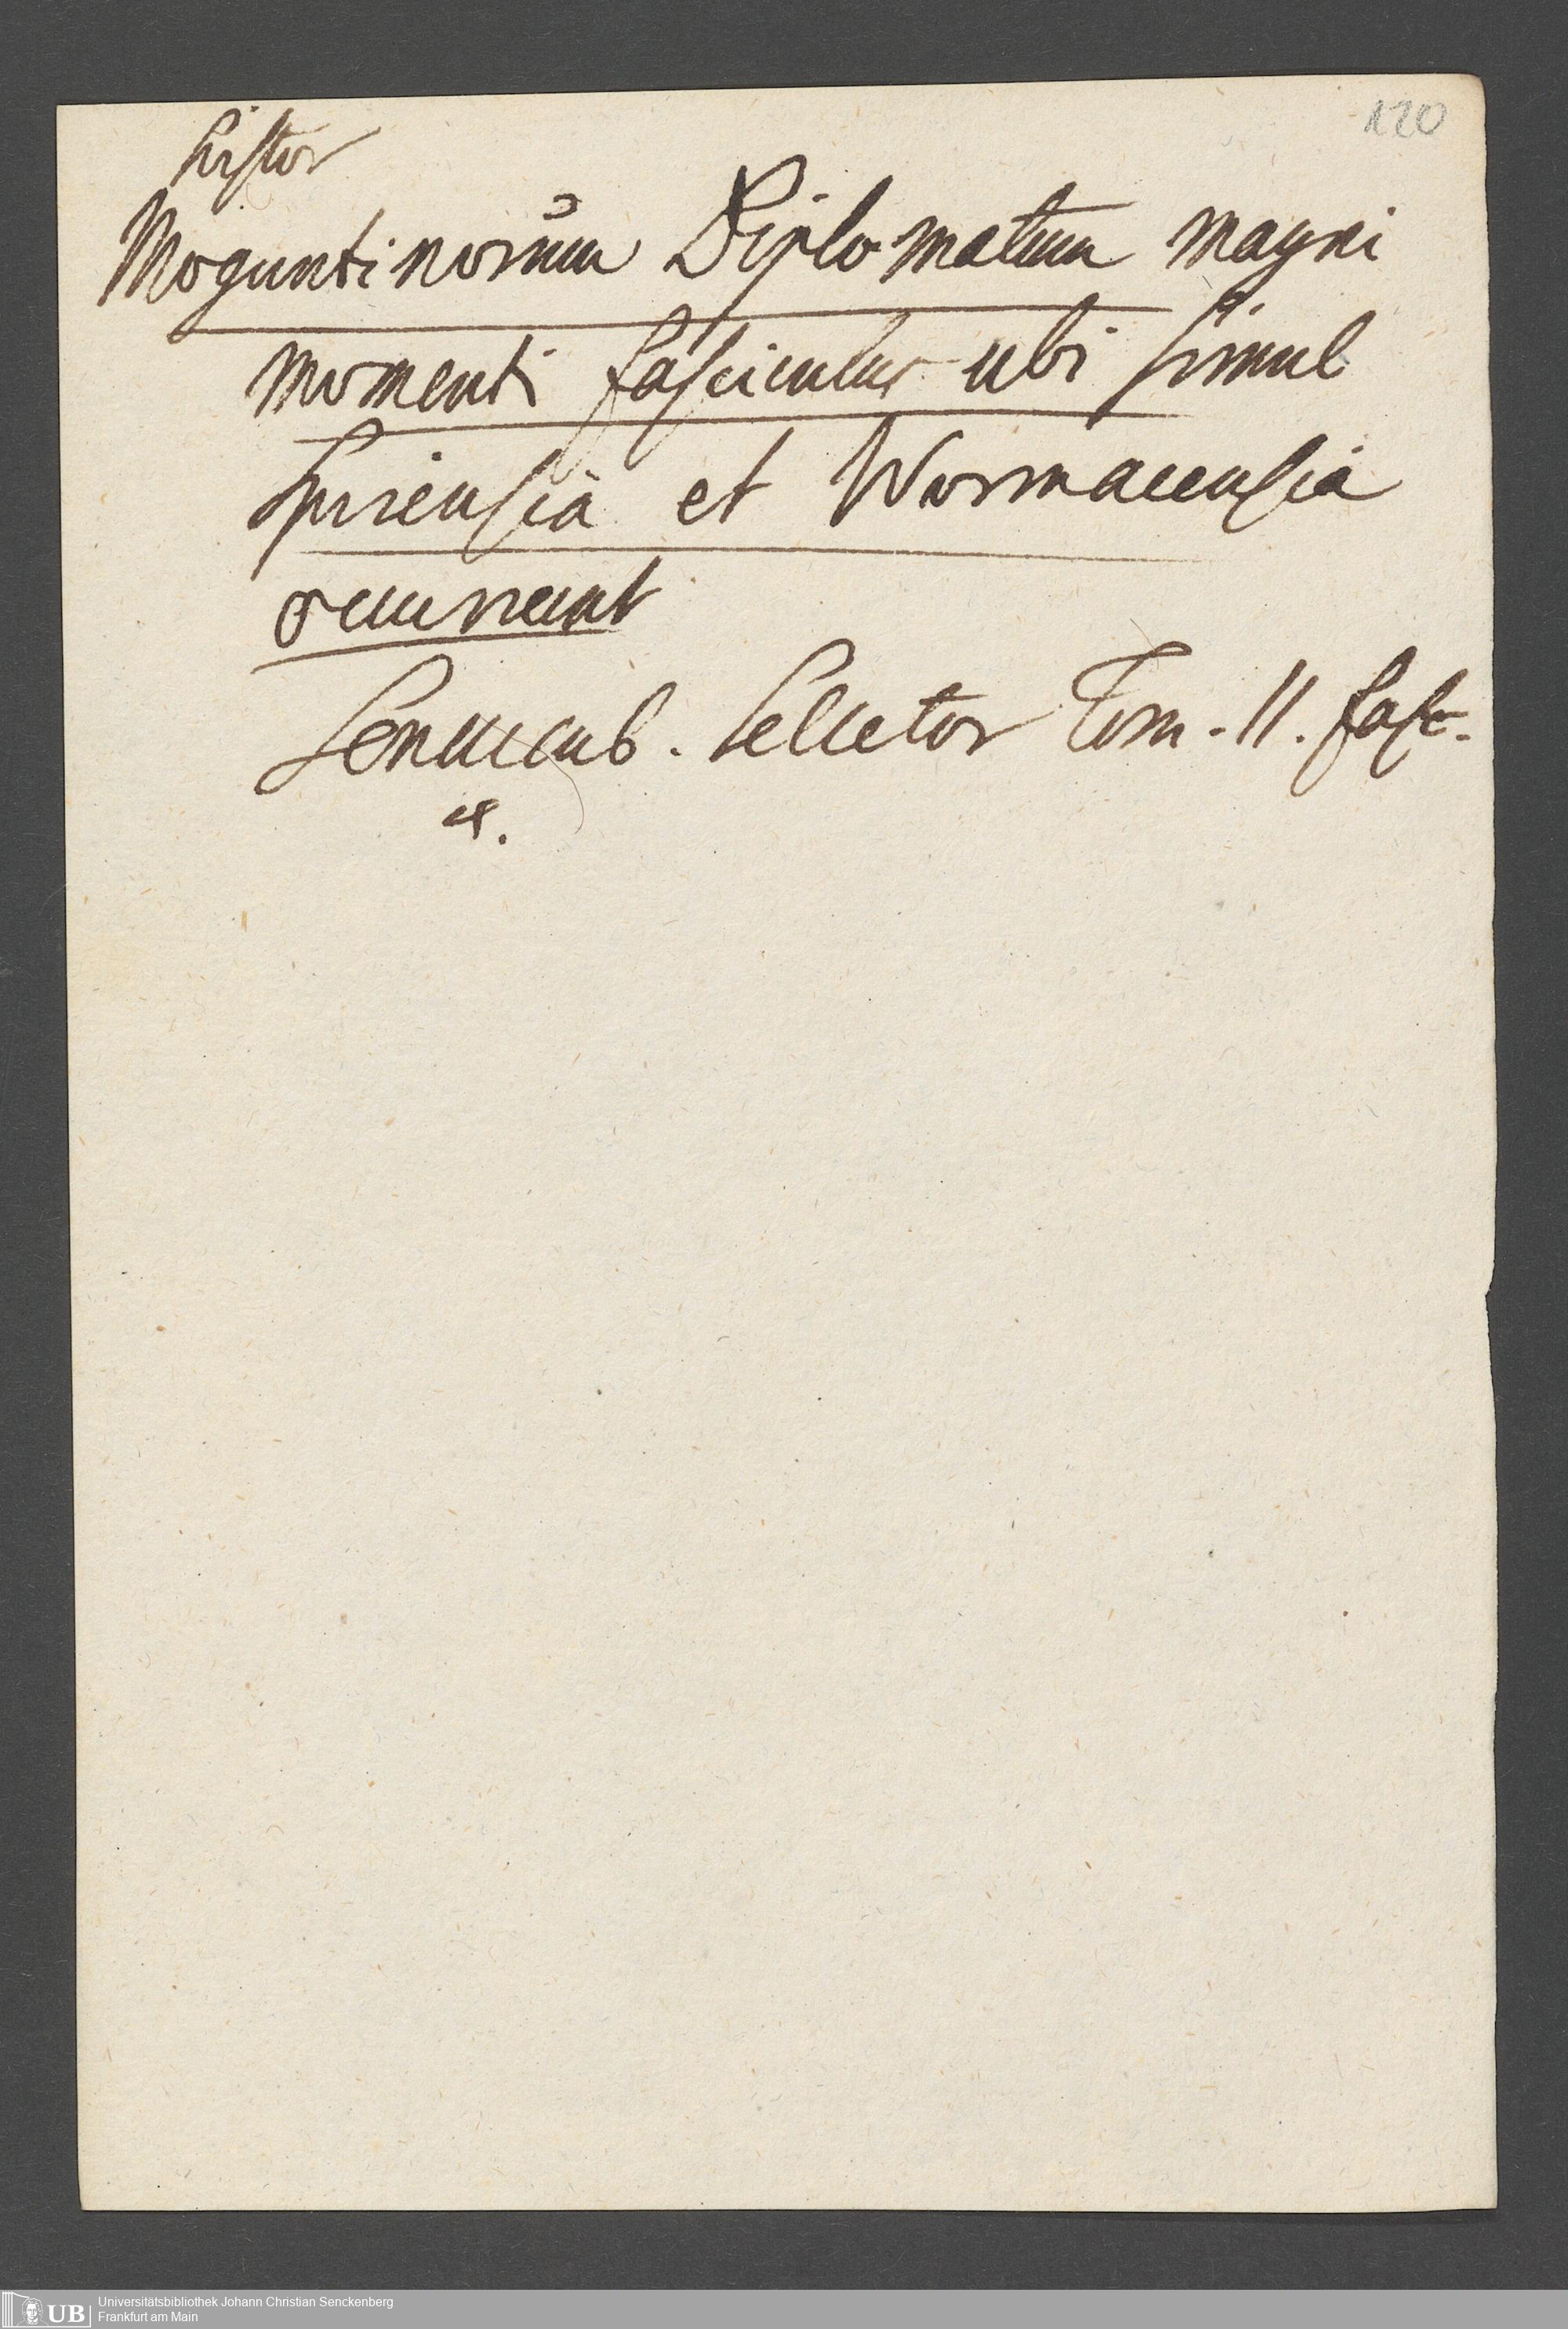 120
histor
Moguntinorum Diplomatum magni
momenti fasciculus ubi simul
Spirensia et Wormacensia
occurrunt
Senckenb. Selector Tom. II. fasc.
4.
UB Universitätsbibliothek Johann Christian Senckenberg
Frankfurt am Main